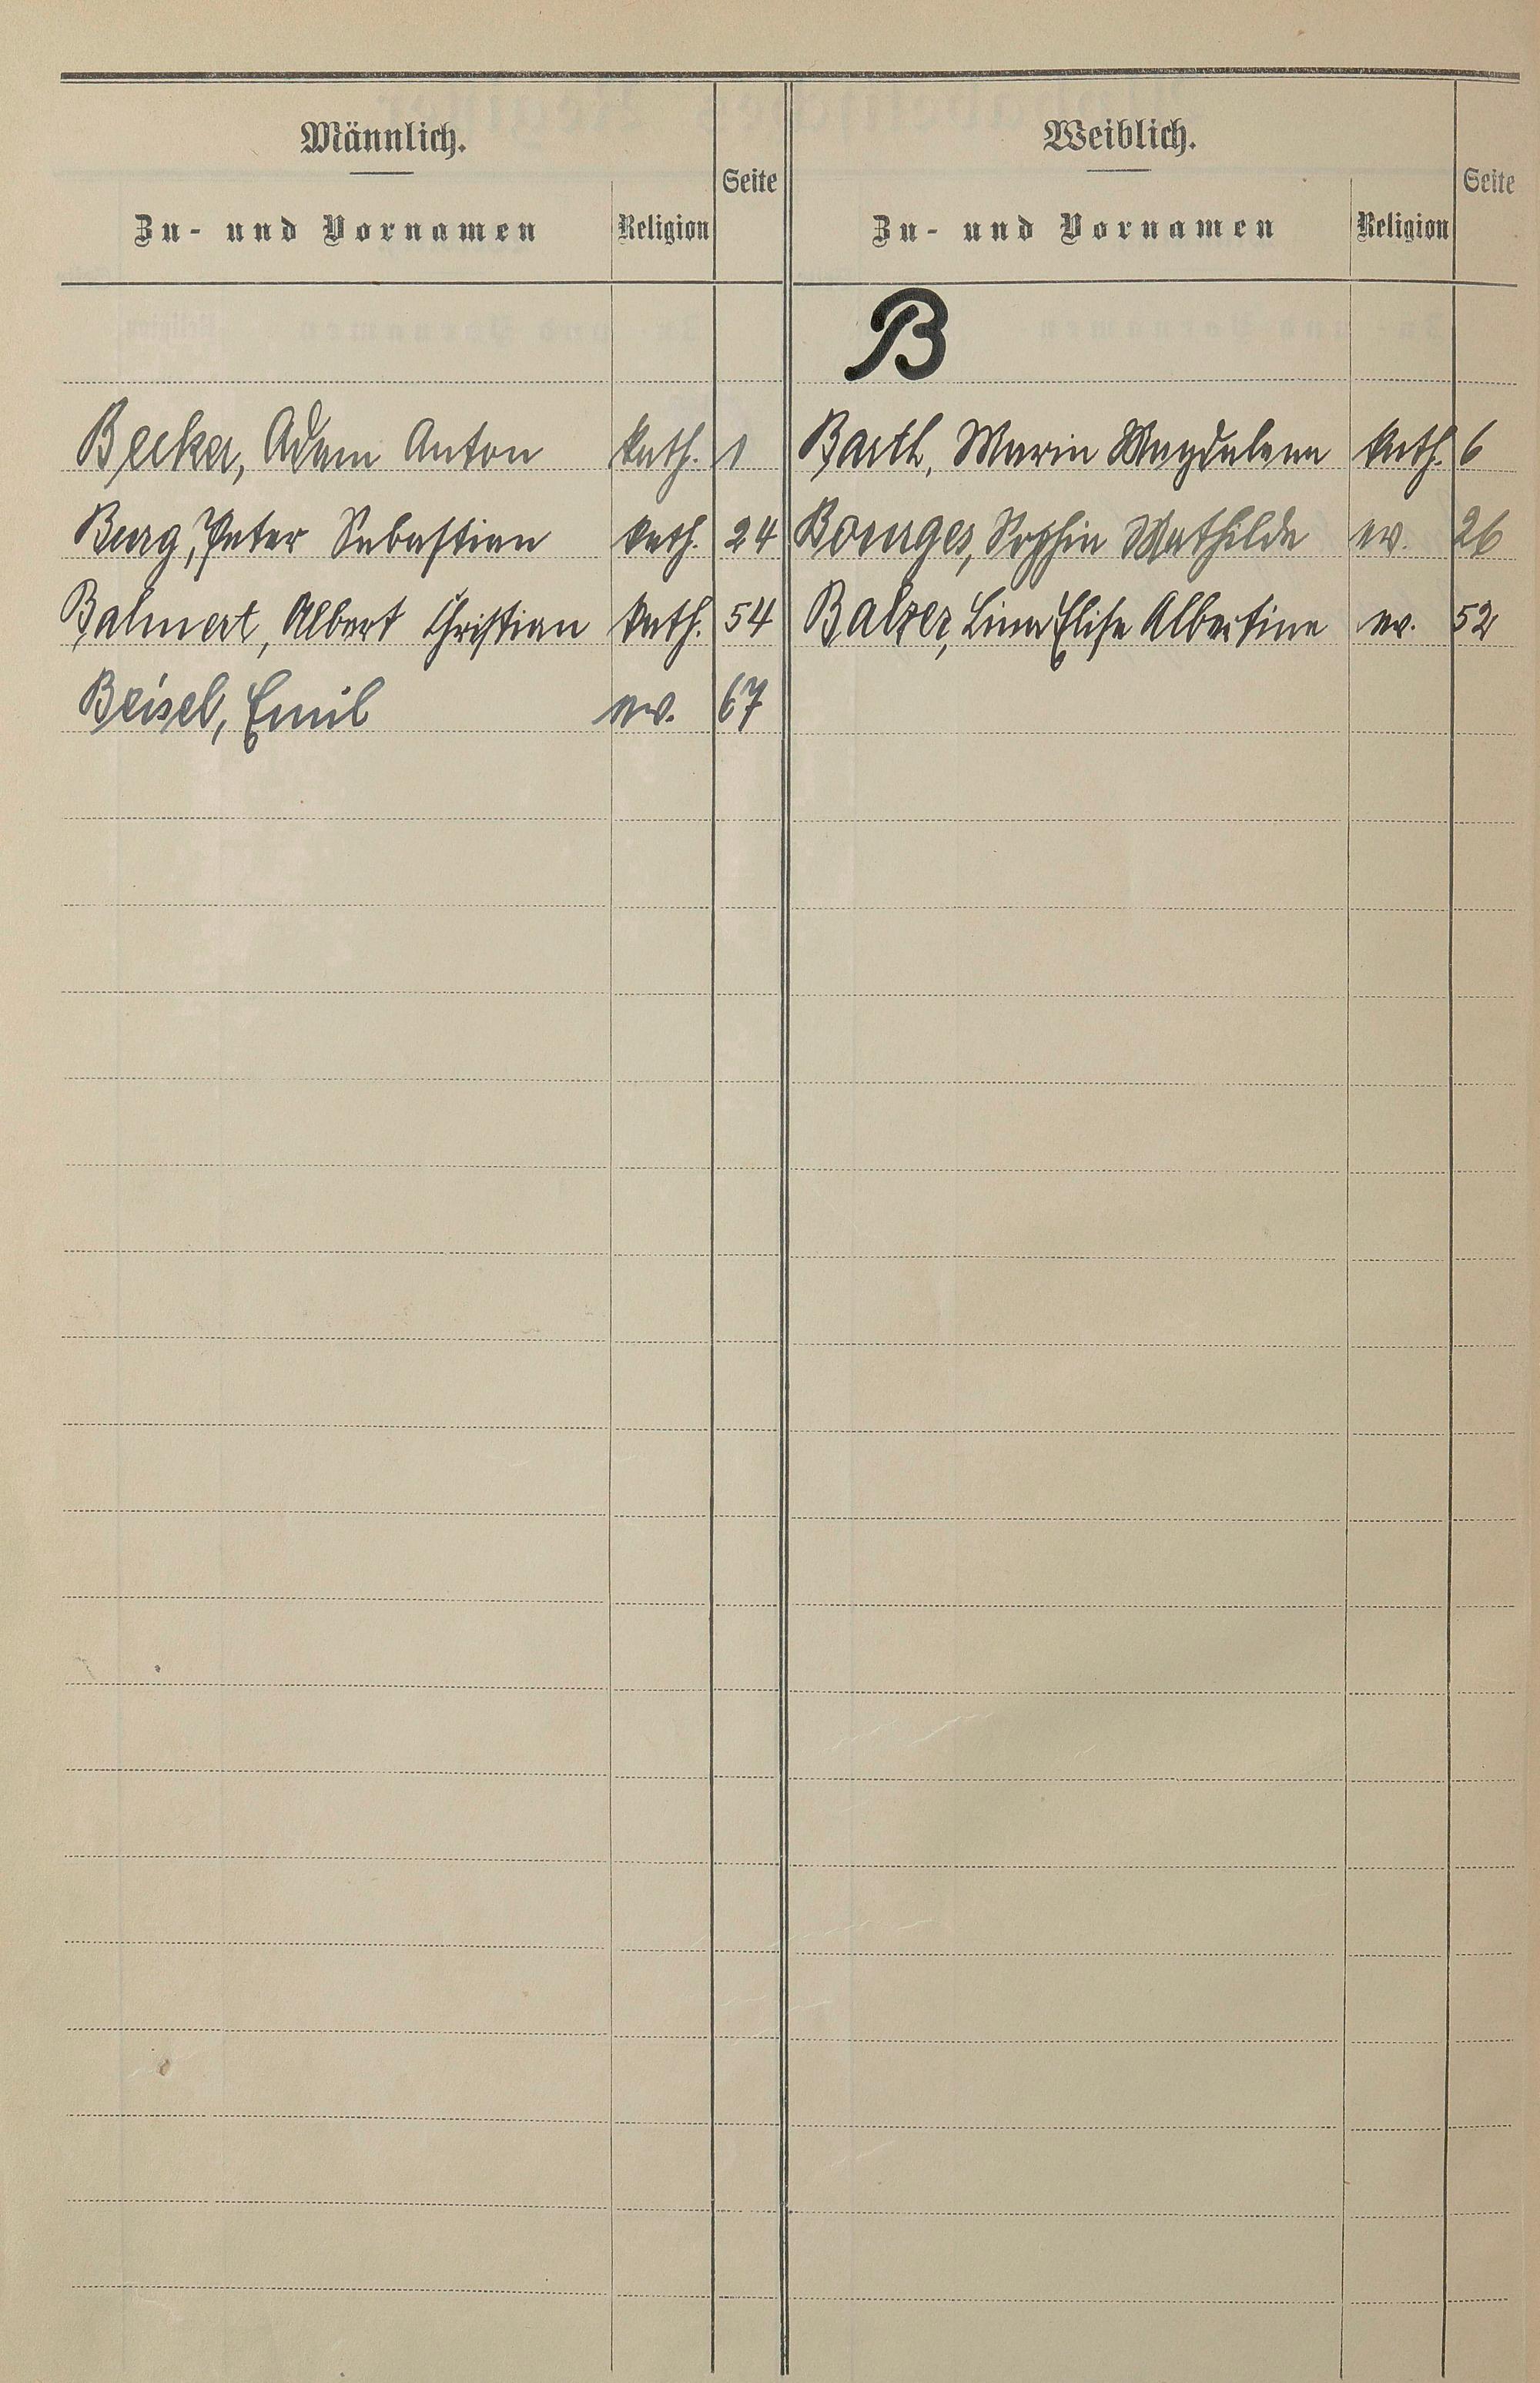 Männlich.
Seite
Zu- und Vornamen
Religion
Weiblich.
Seite
Zu- und Vornamen
Religion
B
Becker, Adam Anton kath. 1
Burg, Peter Sebastian kath. 24
Balmert, Albert Christian kath. 54
Beisel, Emil ev. 67
Barth, Maria Magdalena kath. 6
Bourges, Sophie Mathilde ev. 26
Balzer, Lina Elise Albertine ev. 52